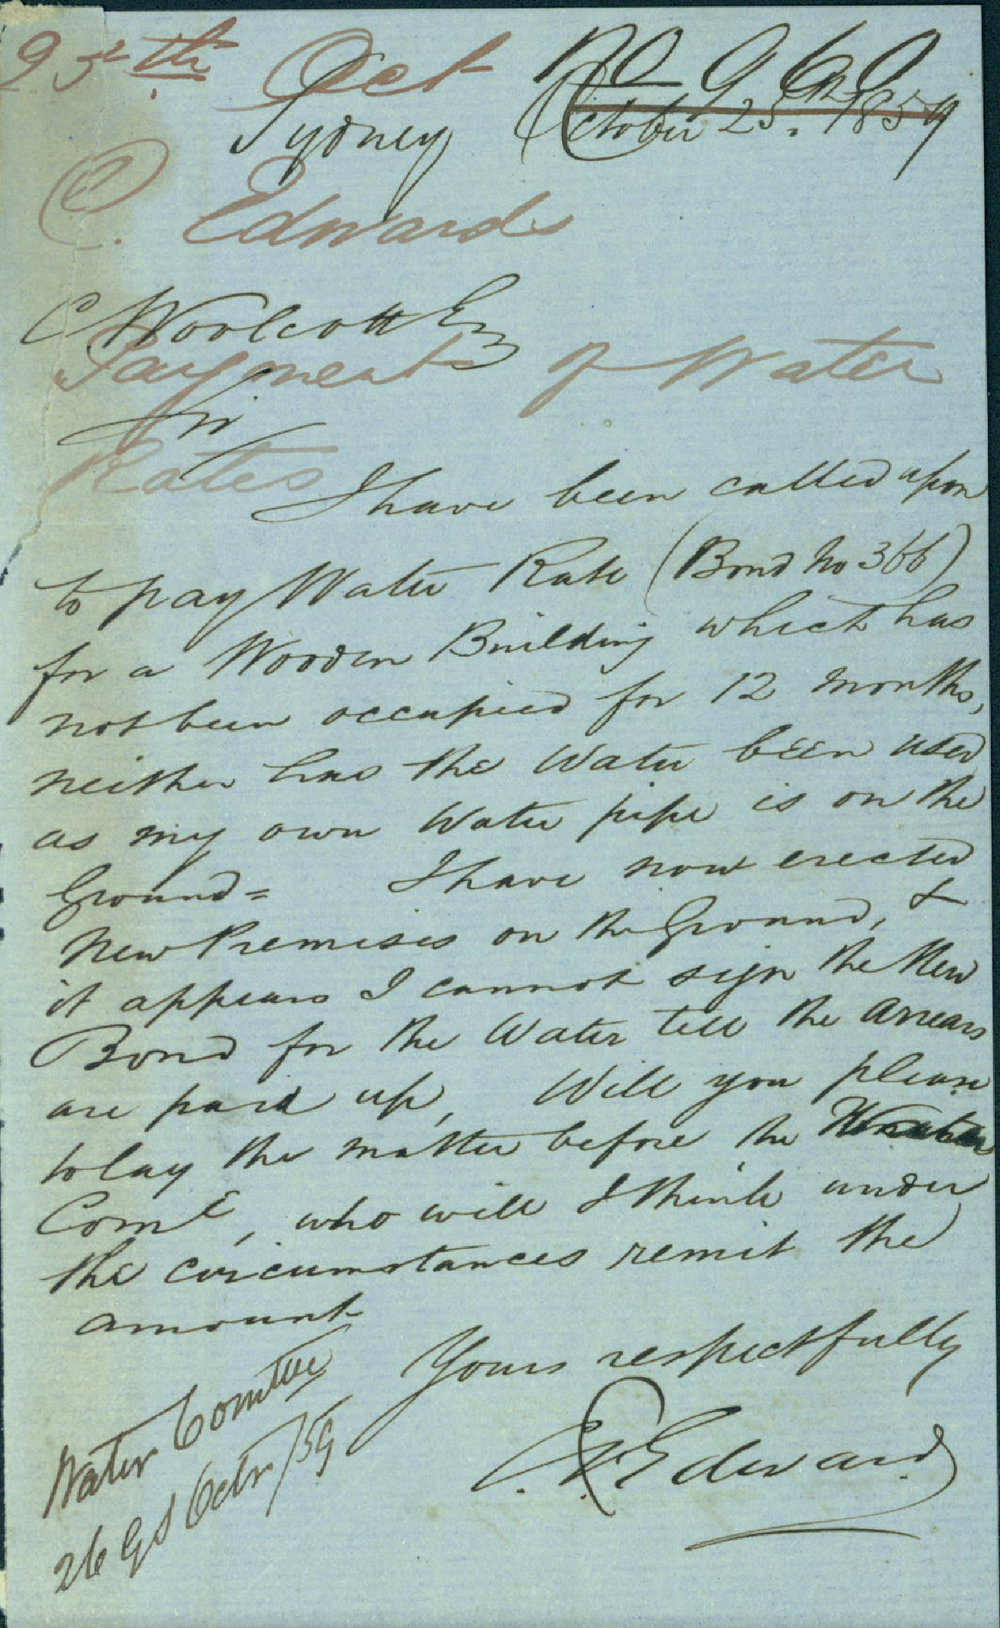 25th Oct
No 960
Sydney October 25th 1859
C. Edwards
C Woolcott Esq
Payment of Water
Sir
Rates
I have been called upon
to pay Water Rate (Bond No 366)
for a Wooden Building which has
not been occupied for 12 months,
neither has the Water been used
as my own Water pipe is on the
Ground = I have now erected
New Premises on the Ground, &
it appears I cannot sign the New
Bond for the Water till the arrears
are paid up, Will you please
to lay the matter before the Water
Come, who will I think under
the circumstances remit the
amount
Yours respectfully
Edwards
Water Comttee
26 Octr/59